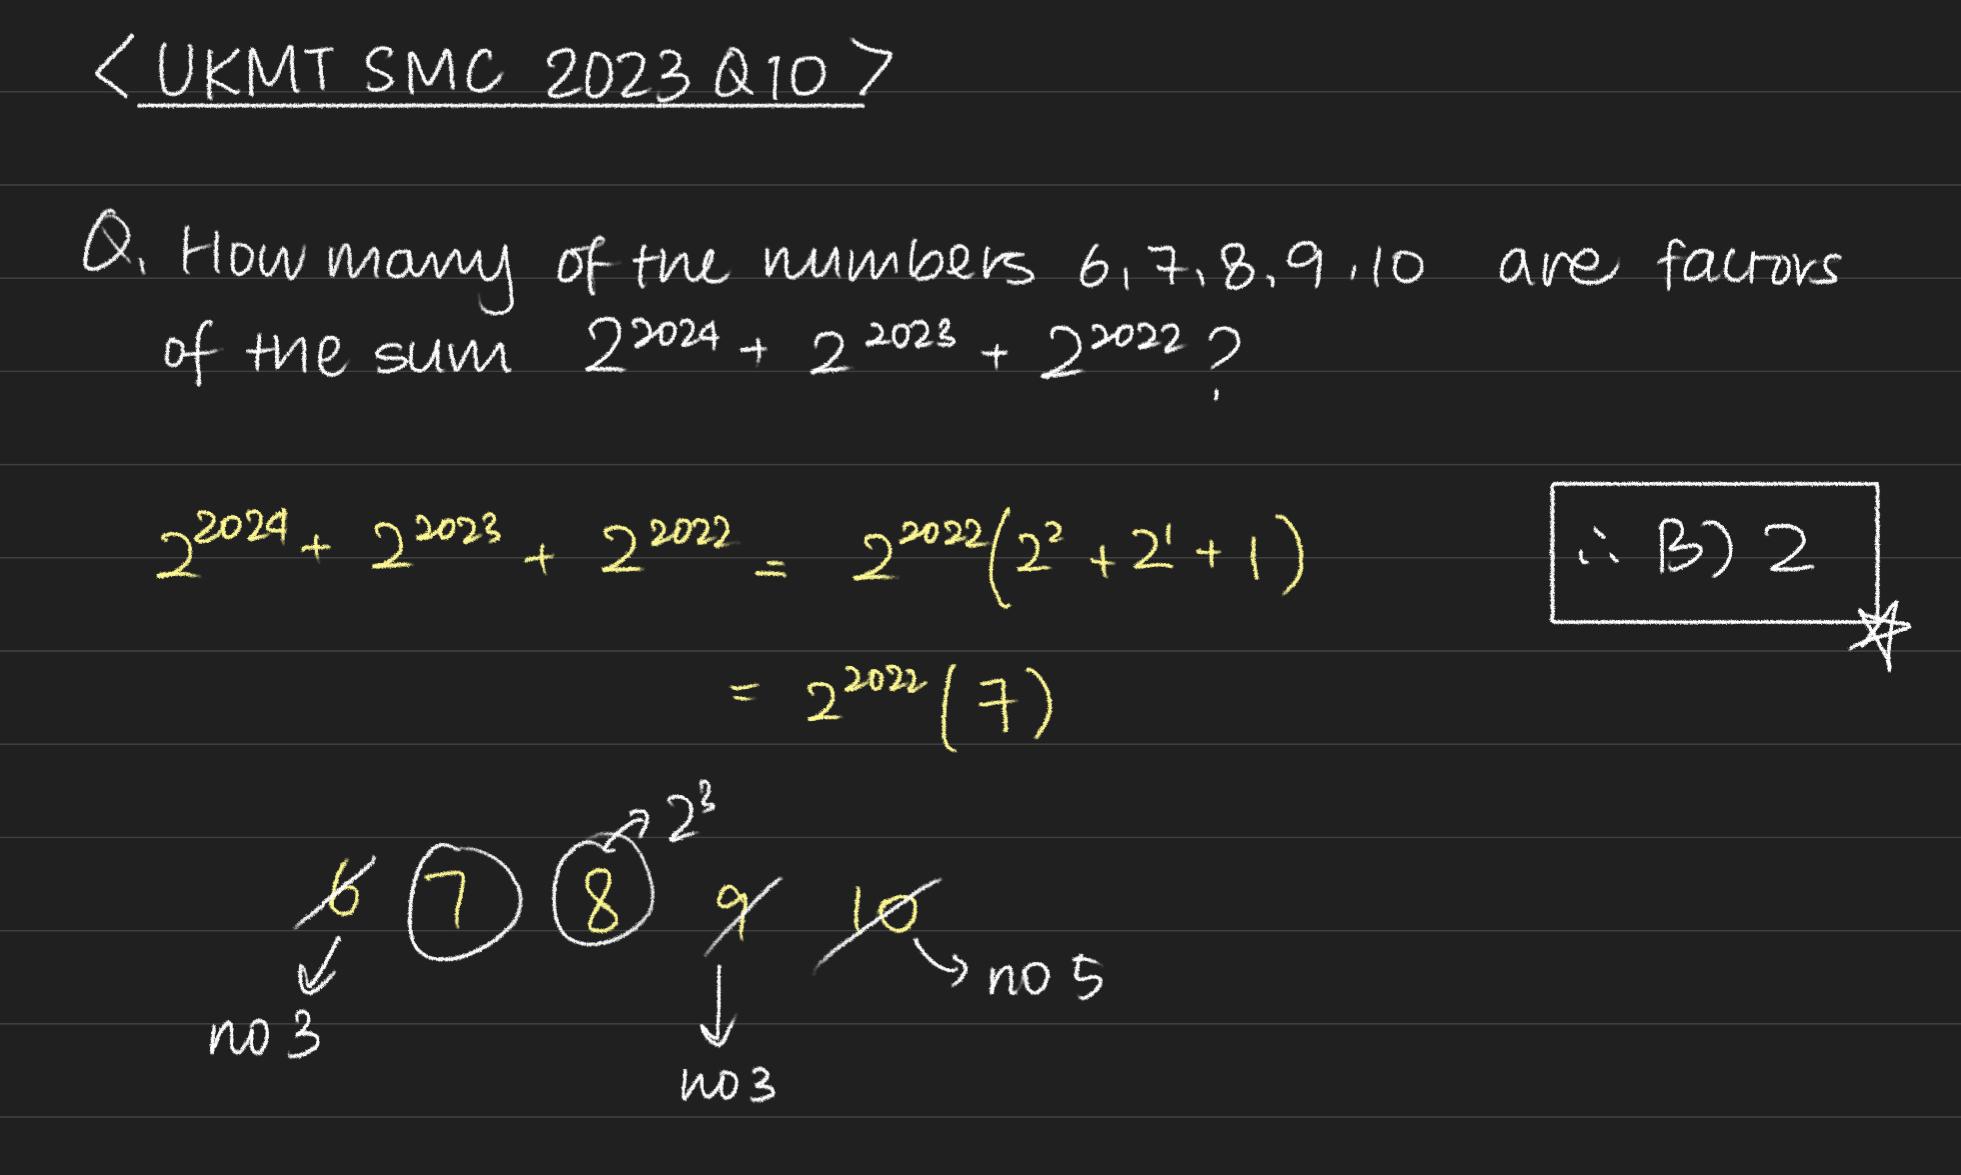 <UKMT SMC 2023 Q10>
Q. How many of the numbers 6, 7, 8, 9, 10 are factors
of the sum 2^2024 + 2^2023 + 2^2022 ?
2^2024 + 2^2023 + 2^2022 = 2^2022 (2^2 + 2^1 + 1)
∴ B) 2
= 2^2022 (7)
2^3
6 7 8 9 10
no 5
no 3
no 3